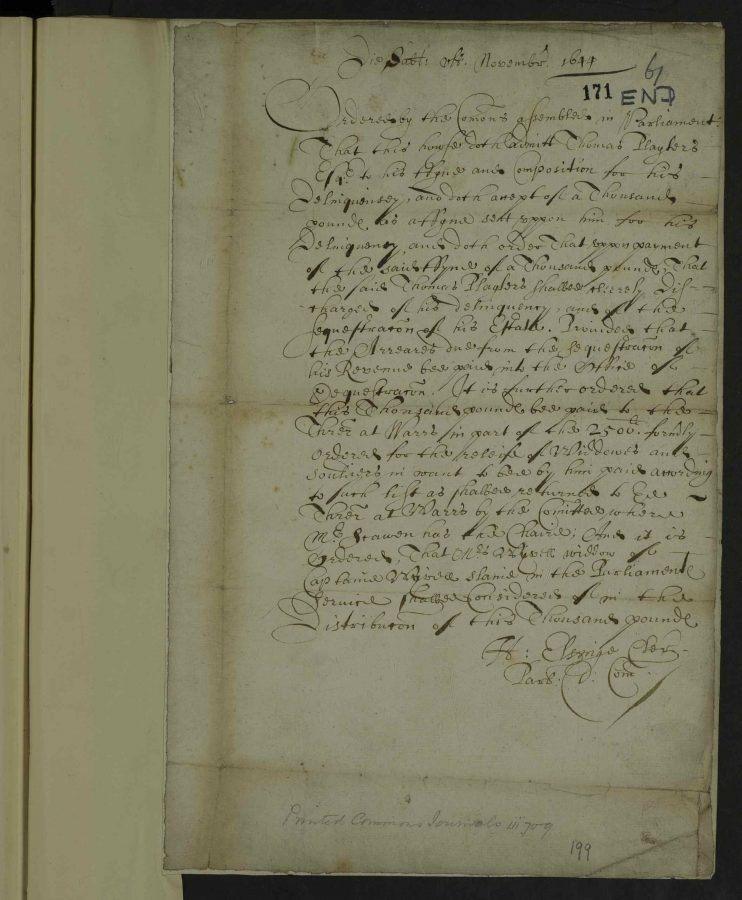 Die Sabti Novembr. 1644
61
171 END
Ordered by the Comons assembled in Parliament
That this howse doth admitt Thomas Playters
Esqr to his ffyne and Composition for his
Delinquency, and doth accept of a Thousand
pounds as a ffyne sett vppon him for his
Delinquency, and doth order That vppon payment
of the said ffyne of a Thousand pounds That
the said Thomas Playters shalbee thereby Dis-
charged of his delinquency, and of the
sequestracon of his Estate. Provided that
the Arreares due from the sequestracon of
his Revenue bee paid into the Office of
Sequestracon. It is further ordered that
this Thousand pounds bee paid to the
Threr at Warrs in part of the 2500li formly
ordered for the releife of Widdowes and
souldiers in want to bee by him paid according
to such list as shalbee returned to the
Threr at Warrs by the Comittee where
Mr. Scawen has the Chaire, And it is
Ordered, That Mrs widdow of
Captaine slaine in the Parliaments
Service shalbee Considered of in the
Distribucon of this Thousand pounds
H: Elsynge Cler.
Parl. D. Com.
Printed Commons Journals iii 709
199